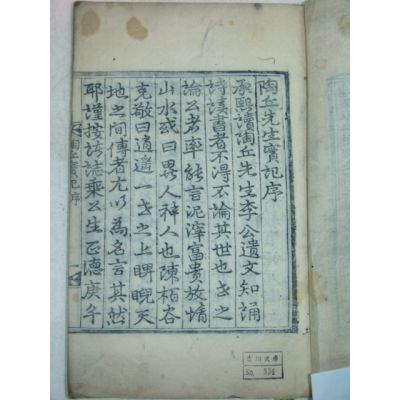 陶丘先生實記序
承熙讀陶丘先生李公遺文知誦
詩讀書者不得不論其世也世之
論公者率能言泥滓富貴放情
山水或曰異人種人也陳栢谷
克敬曰逍遥一世之上睥睨天
地之間傳者尤以為名言其然
耶謹按譜誌乘公生正德庚午
陶丘實記序
一
No. 534